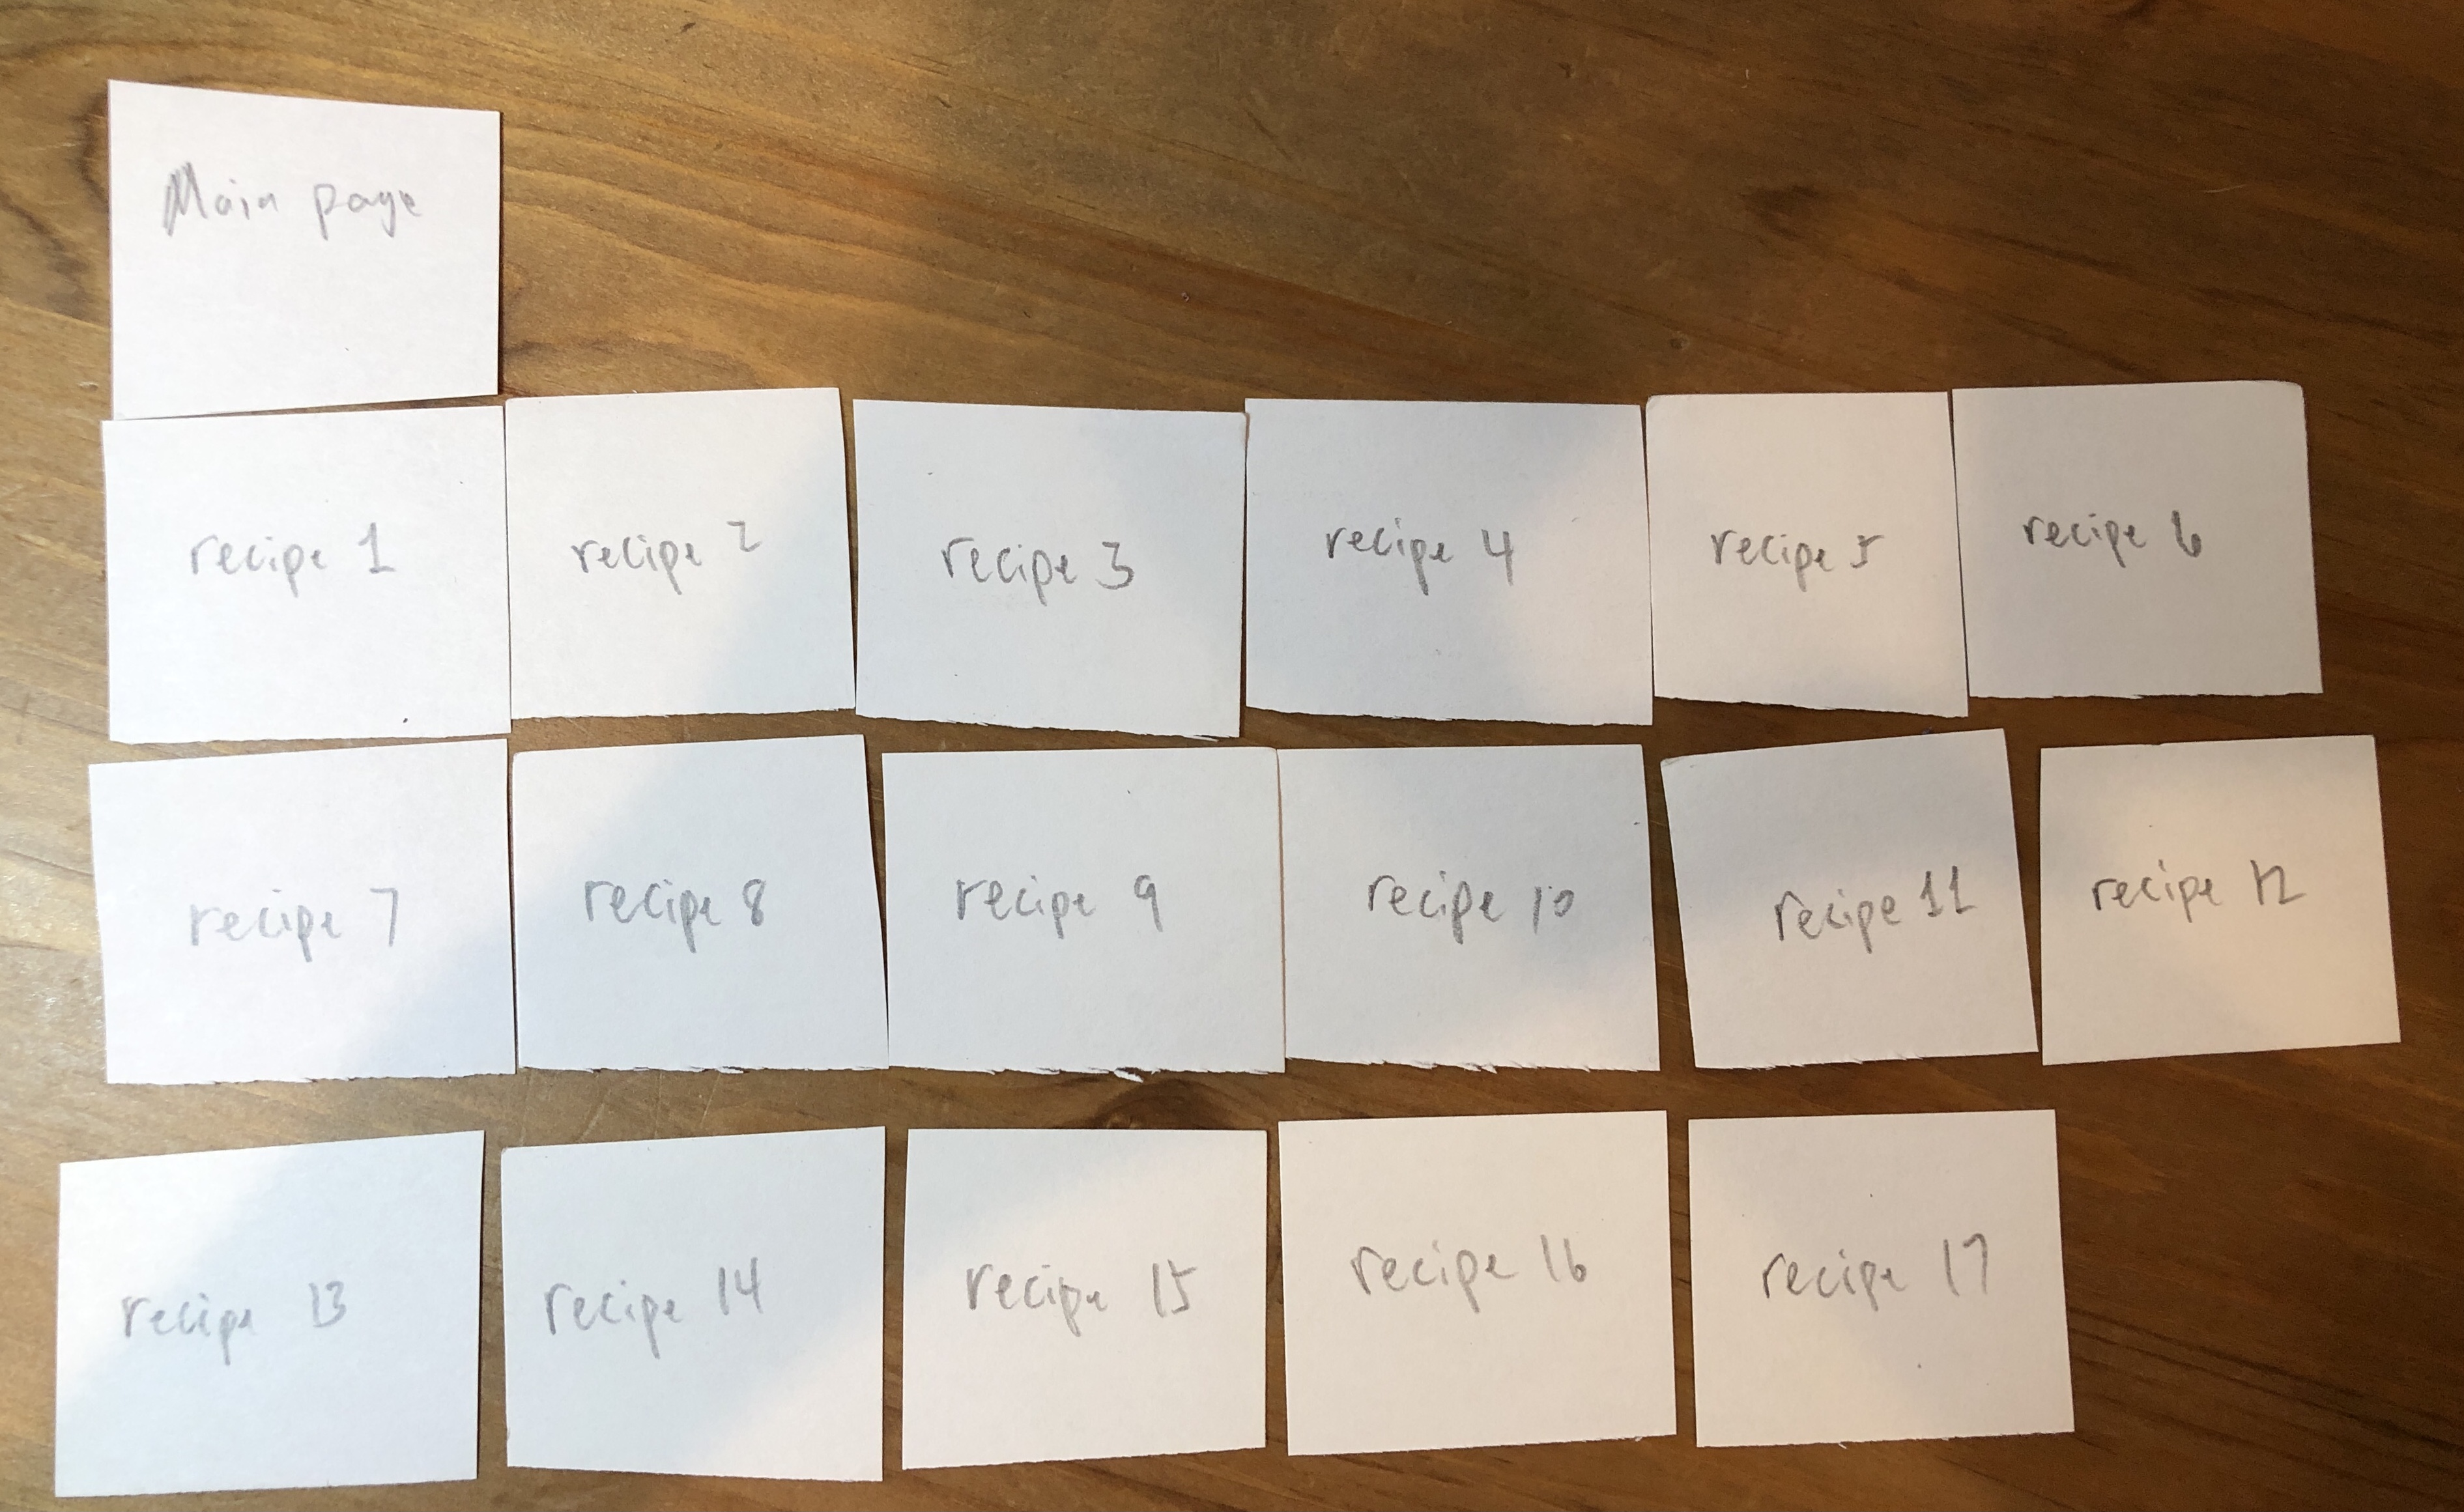 Main page
recipe 1
recipe 2
recipe 3
recipe 4
recipe 5
recipe 6
recipe 7
recipe 8
recipe 9
recipe 10
recipe 11
recipe 12
recipe 13
recipe 14
recipe 15
recipe 16
recipe 17